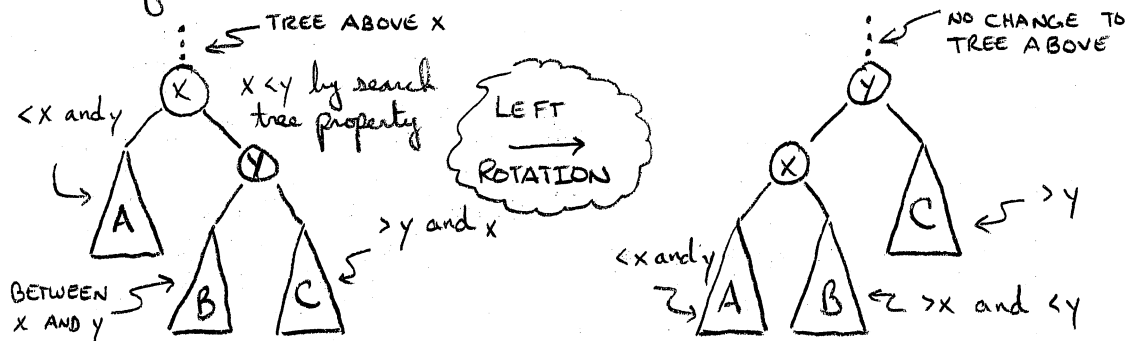 TREE ABOVE X
X
x < y by search
tree property
< x and y
Y
A
> y and x
BETWEEN
X AND Y
B
C
LEFT
ROTATION
NO CHANGE TO
TREE ABOVE
Y
X
C
> y
< x and y
A
B
> x and < y